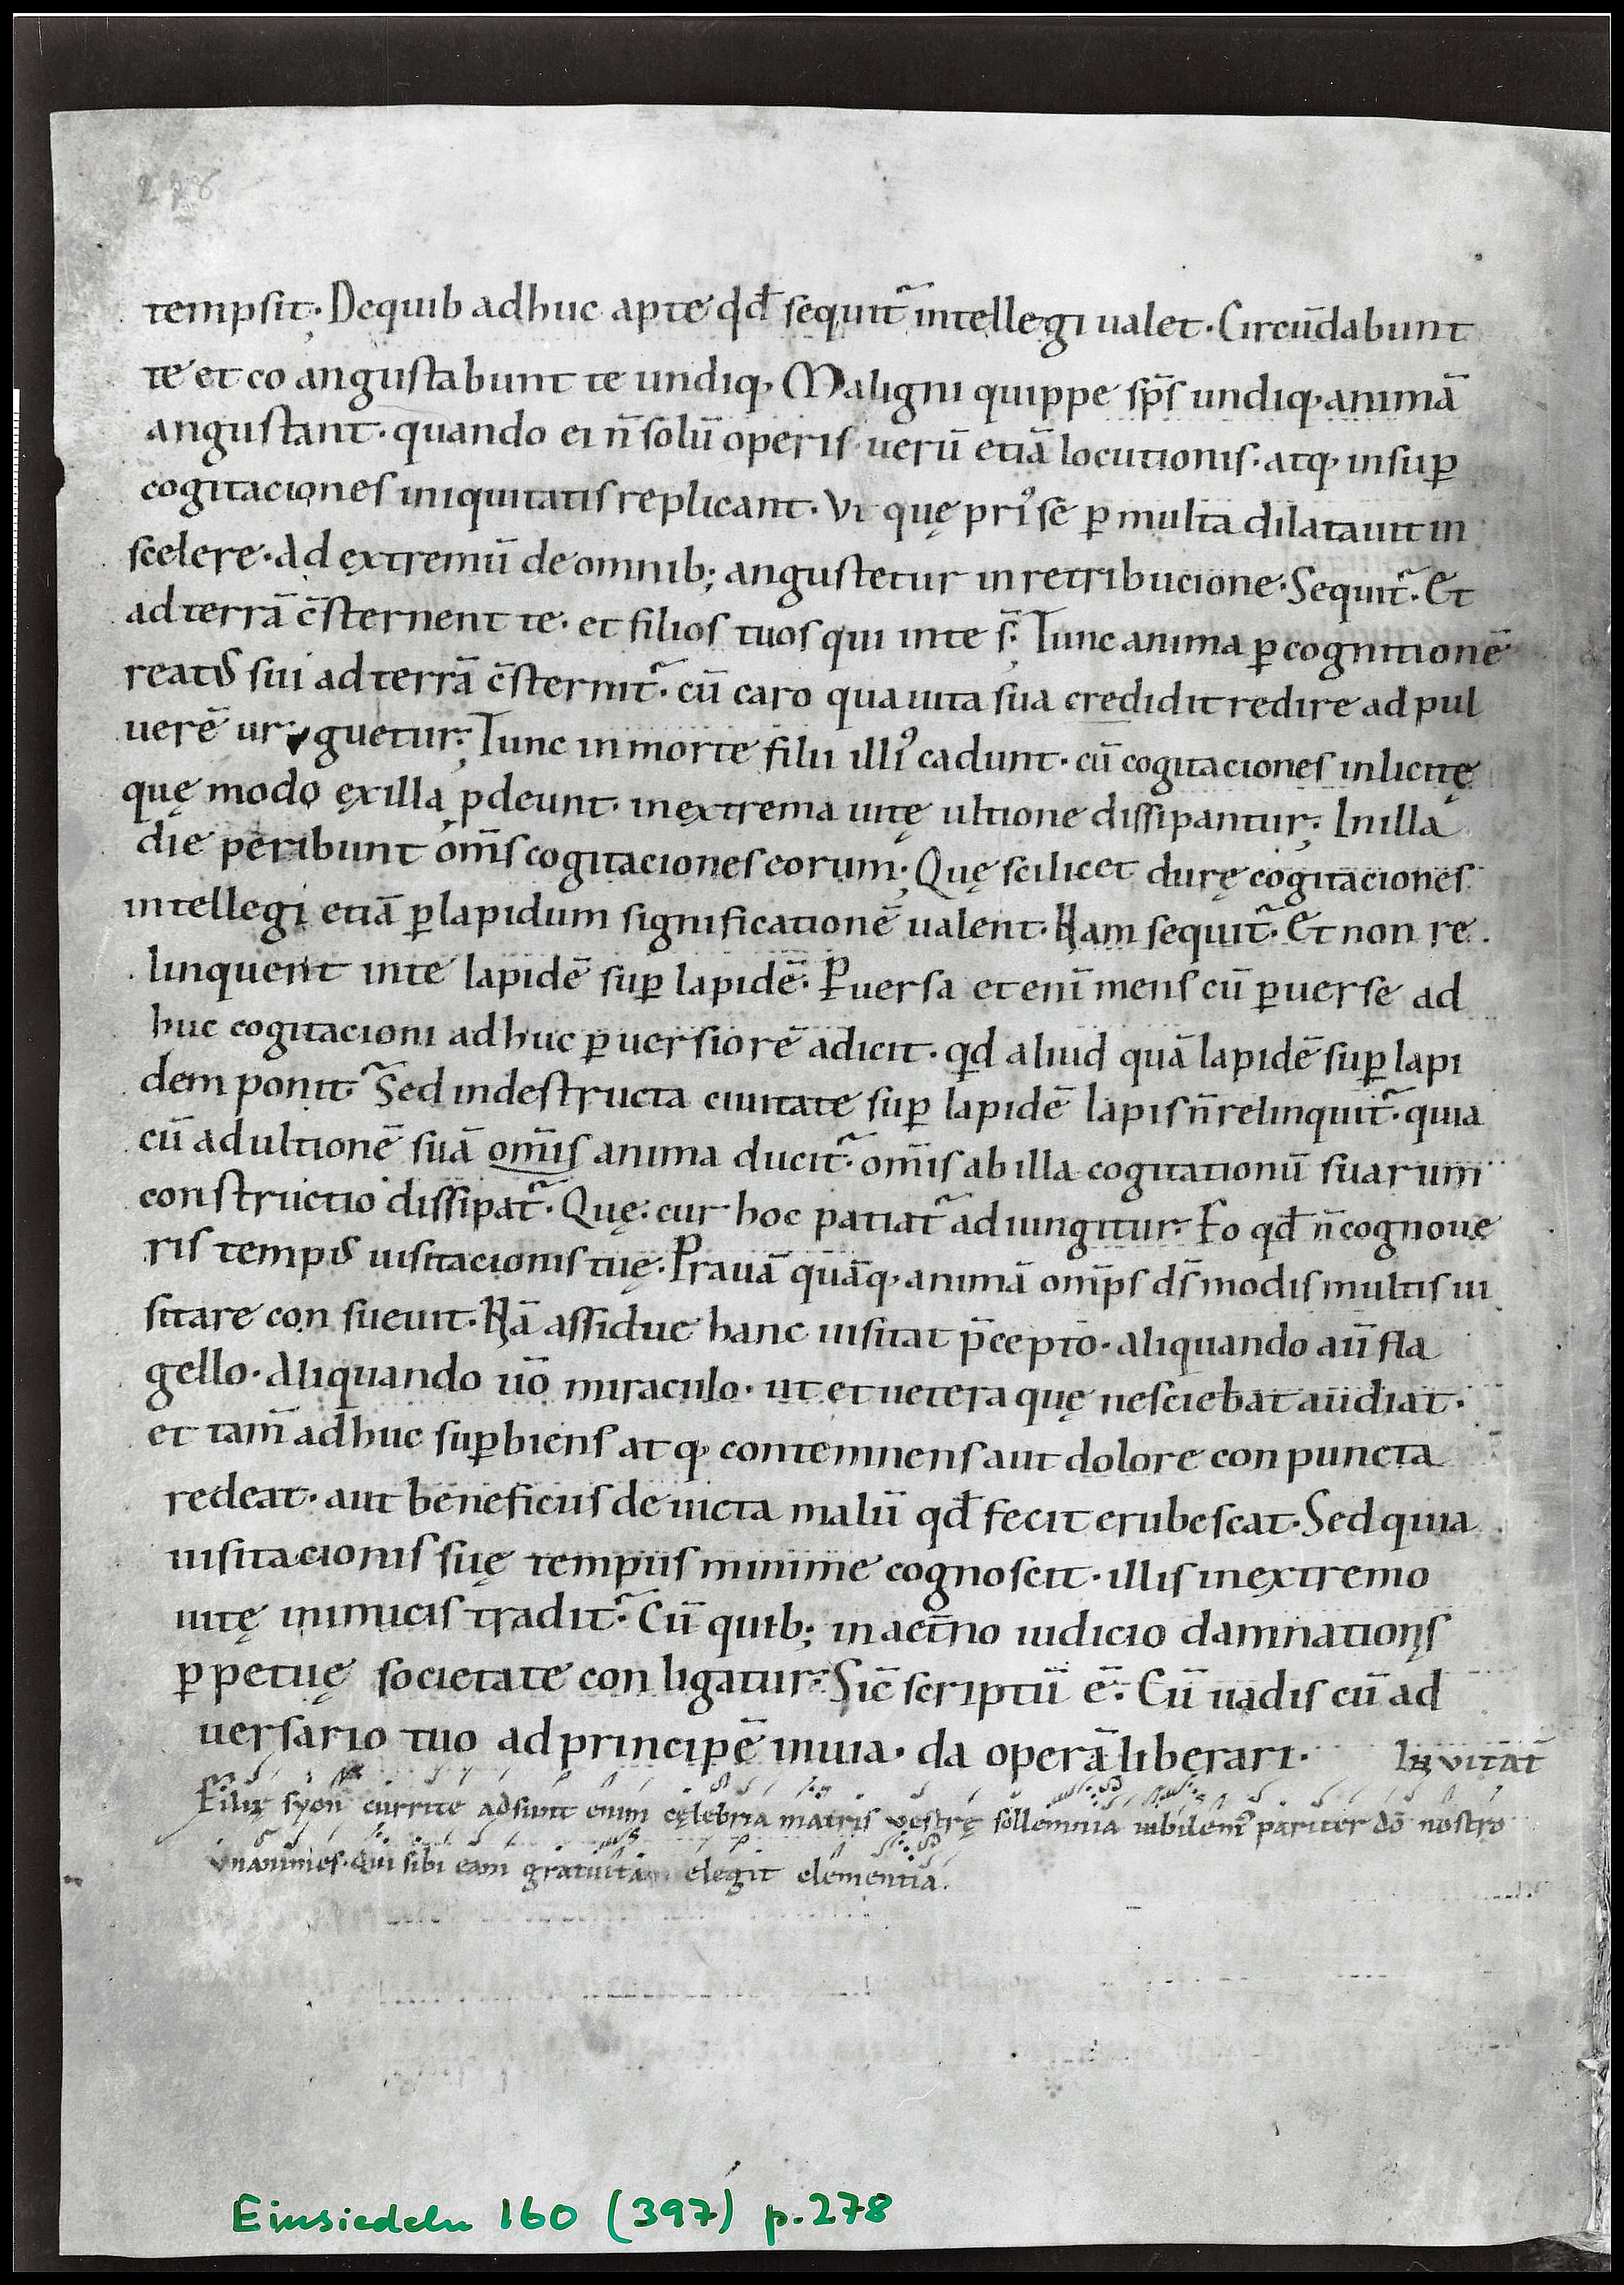 278
tempsit. Dequib adhuc apte qđ sequit̃ intellegi ualet. Circūdabunt
te et co angustabunt te undiq; Maligni quippe sp̄s undiq; animā
angustant. quando ei n̄ solū operis uerū etiā locutionis. atq; insuꝑ
cogitaciones iniquitatis replicant. Vt quę priꝰ se ꝑ multa dilatauit in
scelere. ad extremū de omnib; angustetur inretribucione. Sequit̃. Et
adterrā c̄sternent te. et filios tuos qui inte s̄. Tunc anima ꝑ cognitionē
reatꝰ sui adterrā c̄sternit̃. cū caro qua uita sua credidit redire ad pul
uerē ur guetur. Tunc inmorte filii illiꝰ cadunt. cū cogitaciones inlicitę
quę modo exilla ꝓdeunt. inextrema uitę ultione dissipantur. Inilla
die peribunt om̄s cogitaciones eorum. Quę scilicet durę cogitaciones
intellegi etiā ꝑ lapidum significationē ualent. Nam sequit̃. Et non re
linquent inte lapidē suꝑ lapidē. Ꝑuersa etenī mens cū ꝑuerse ad
huc cogitacioni adhuc ꝑuersiorē adicit. qđ aliud quā lapidē suꝑ lapi
dem ponit̃. Sed indestructa ciuitate suꝑ lapidē lapis n̄ relinquit̃. quia
cū adultionē suā om̄is anima ducit̃. om̄is ab illa cogitationū suarum
constructio dissipat̃. Quę cur hoc patiat̃ adiungitur. Eo qđ n̄ cognoue
ris tempꝰ uisitacionis tuę. Prauā quāq; animā omp̄s d̄s modis multis ui
sitare con sueuit. Nā assidue hanc uisitat p̄cepto. aliquando aū fla
gello. Aliquando ūo miraculo. ut et uetera quę nesciebat audiat.
et tam̄ adhuc suꝑbiens at q; contemnens aut dolore con puncta
redeat. aut beneficiis de uicta malū qđ fecit erubescat. Sed quia
uisitacionis suę tempus minime cognoscit. illis inextremo
uitę inimicis tradit̃. Cū quib; inaet̄no iudicio damnationis
ꝑpetuę societate con ligatur. Sic̄ scriptū ē. Cū uadis cū ad
uersario tuo ad principē inuia. da operā liberari. Invitat̄
Filię syon currite adsunt enim cęlebria matris vestrę sollemnia iubilemꝰ pariter dō nostro
vnanimes. qui sibi eam gratuita elegit clementia.
Einsiedeln 160 (397) p. 278